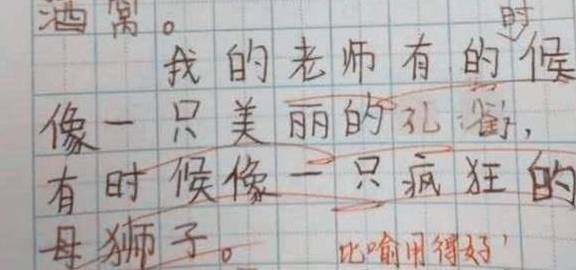 酒窝。
我的老师有的时候
像一只美丽的孔雀,
有时候像一只疯狂的
母狮子。 比喻用得好!